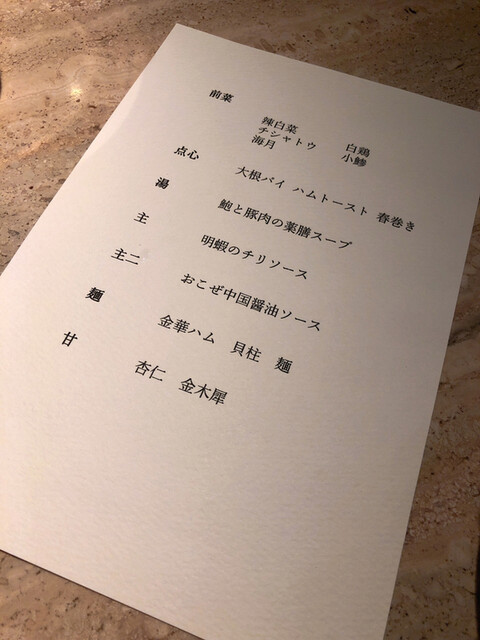 前菜
辣白菜 白鶏
チシャトウ 小鯵
海月
点心 大根パイ ハムトースト 春巻き
湯 鮑と豚肉の薬膳スープ
主 明蝦のチリソース
主二 おこぜ中国醤油ソース
麺 金華ハム 貝柱 麺
甘 杏仁 金木犀